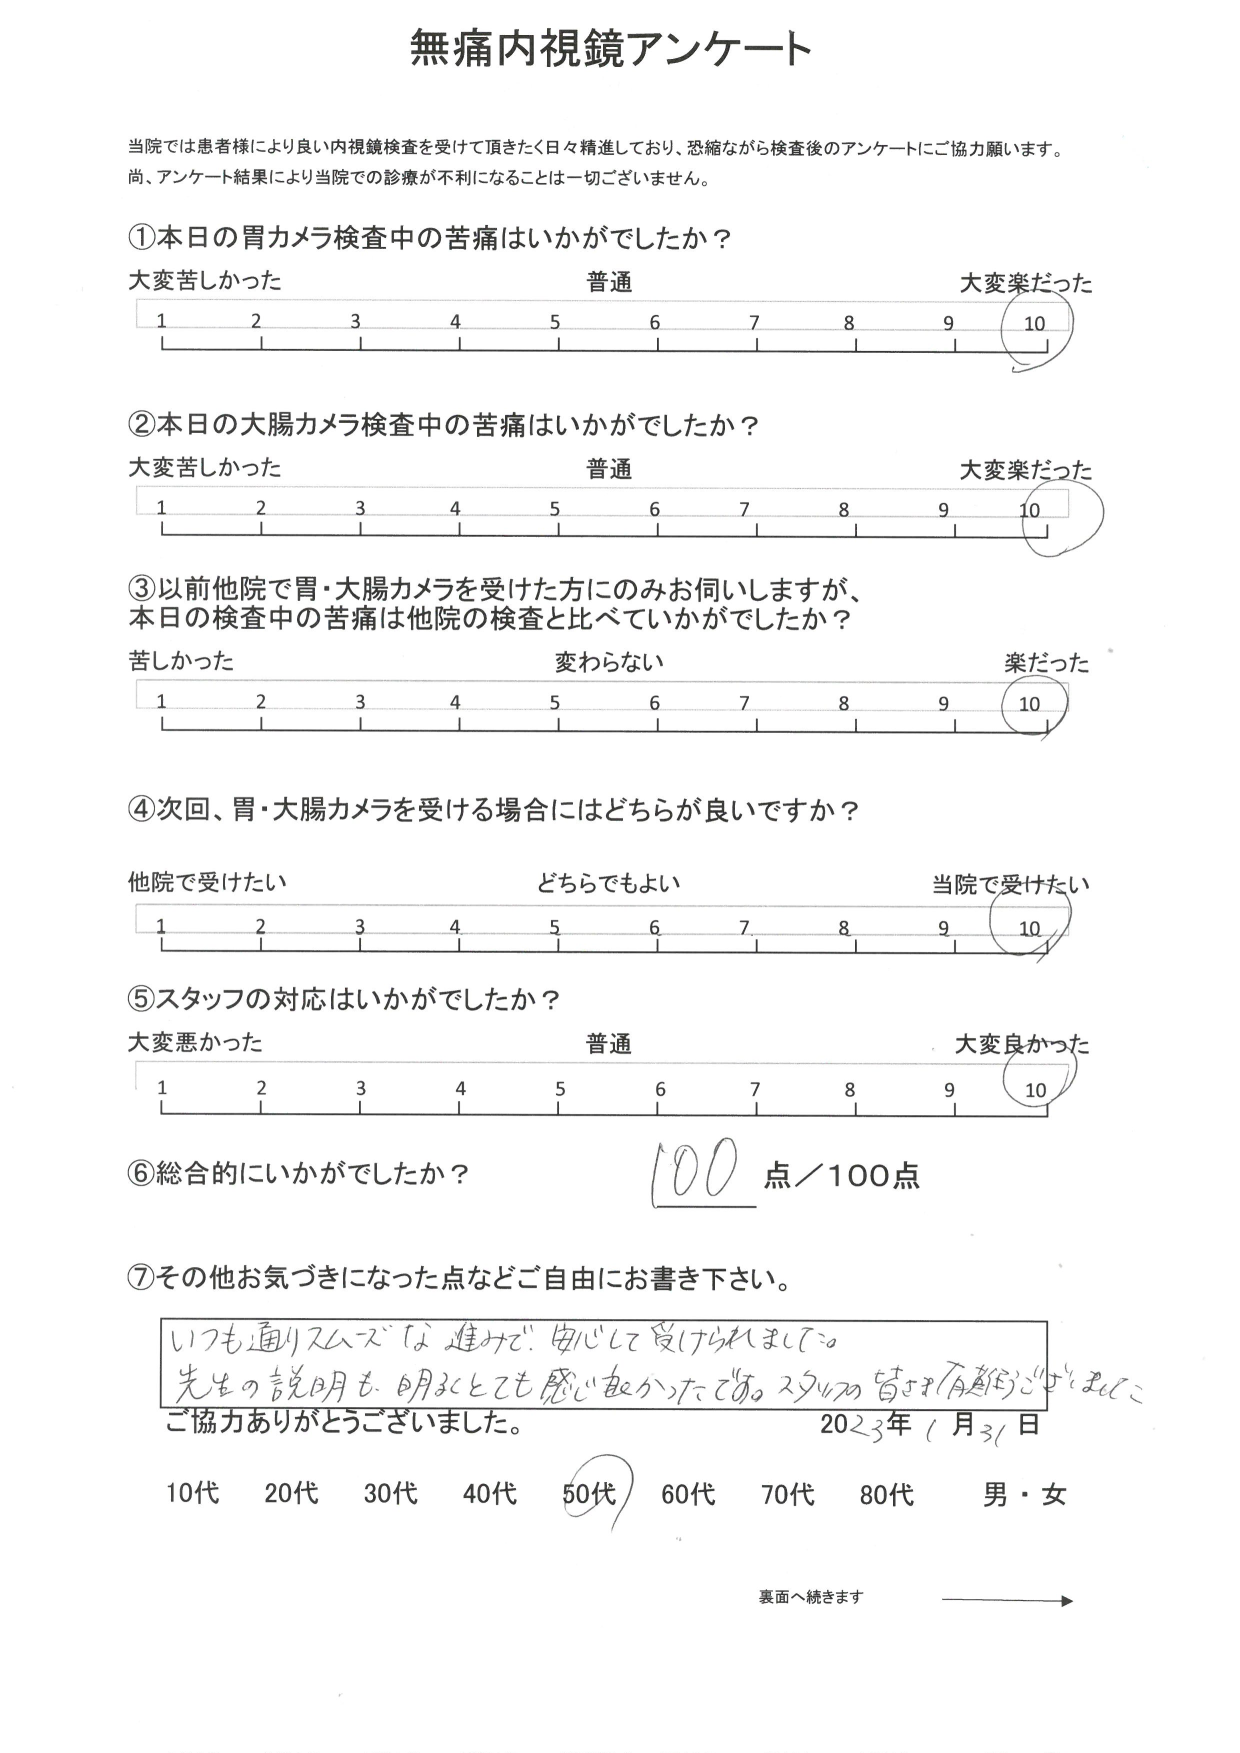 無痛内視鏡アンケート
当院では患者様により良い内視鏡検査を受けて頂きたく日々精進しており、恐縮ながら検査後のアンケートにご協力願います。
尚、アンケート結果により当院での診療が不利になることは一切ございません。
①本日の胃カメラ検査中の苦痛はいかがでしたか？
大変苦しかった 普通 大変楽だった
1 2 3 4 5 6 7 8 9 10
②本日の大腸カメラ検査中の苦痛はいかがでしたか？
大変苦しかった 普通 大変楽だった
1 2 3 4 5 6 7 8 9 10
③以前他院で胃・大腸カメラを受けた方にのみお伺いしますが、
本日の検査中の苦痛は他院の検査と比べていかがでしたか？
苦しかった 変わらない 楽だった
1 2 3 4 5 6 7 8 9 10
④次回、胃・大腸カメラを受ける場合にはどちらが良いですか？
他院で受けたい どちらでもよい 当院で受けたい
1 2 3 4 5 6 7 8 9 10
⑤スタッフの対応はいかがでしたか？
大変悪かった 普通 大変良かった
1 2 3 4 5 6 7 8 9 10
⑥総合的にいかがでしたか？ 100 点／100点
⑦その他お気づきになった点などご自由にお書き下さい。
いつも通りスムーズな進みで安心して受けられました。
先生の説明も明るくとても感じ良かったです。スタッフの皆さま有難うございました
ご協力ありがとうございました。 2023年1月31日
10代 20代 30代 40代 50代 60代 70代 80代 男・女
裏面へ続きます